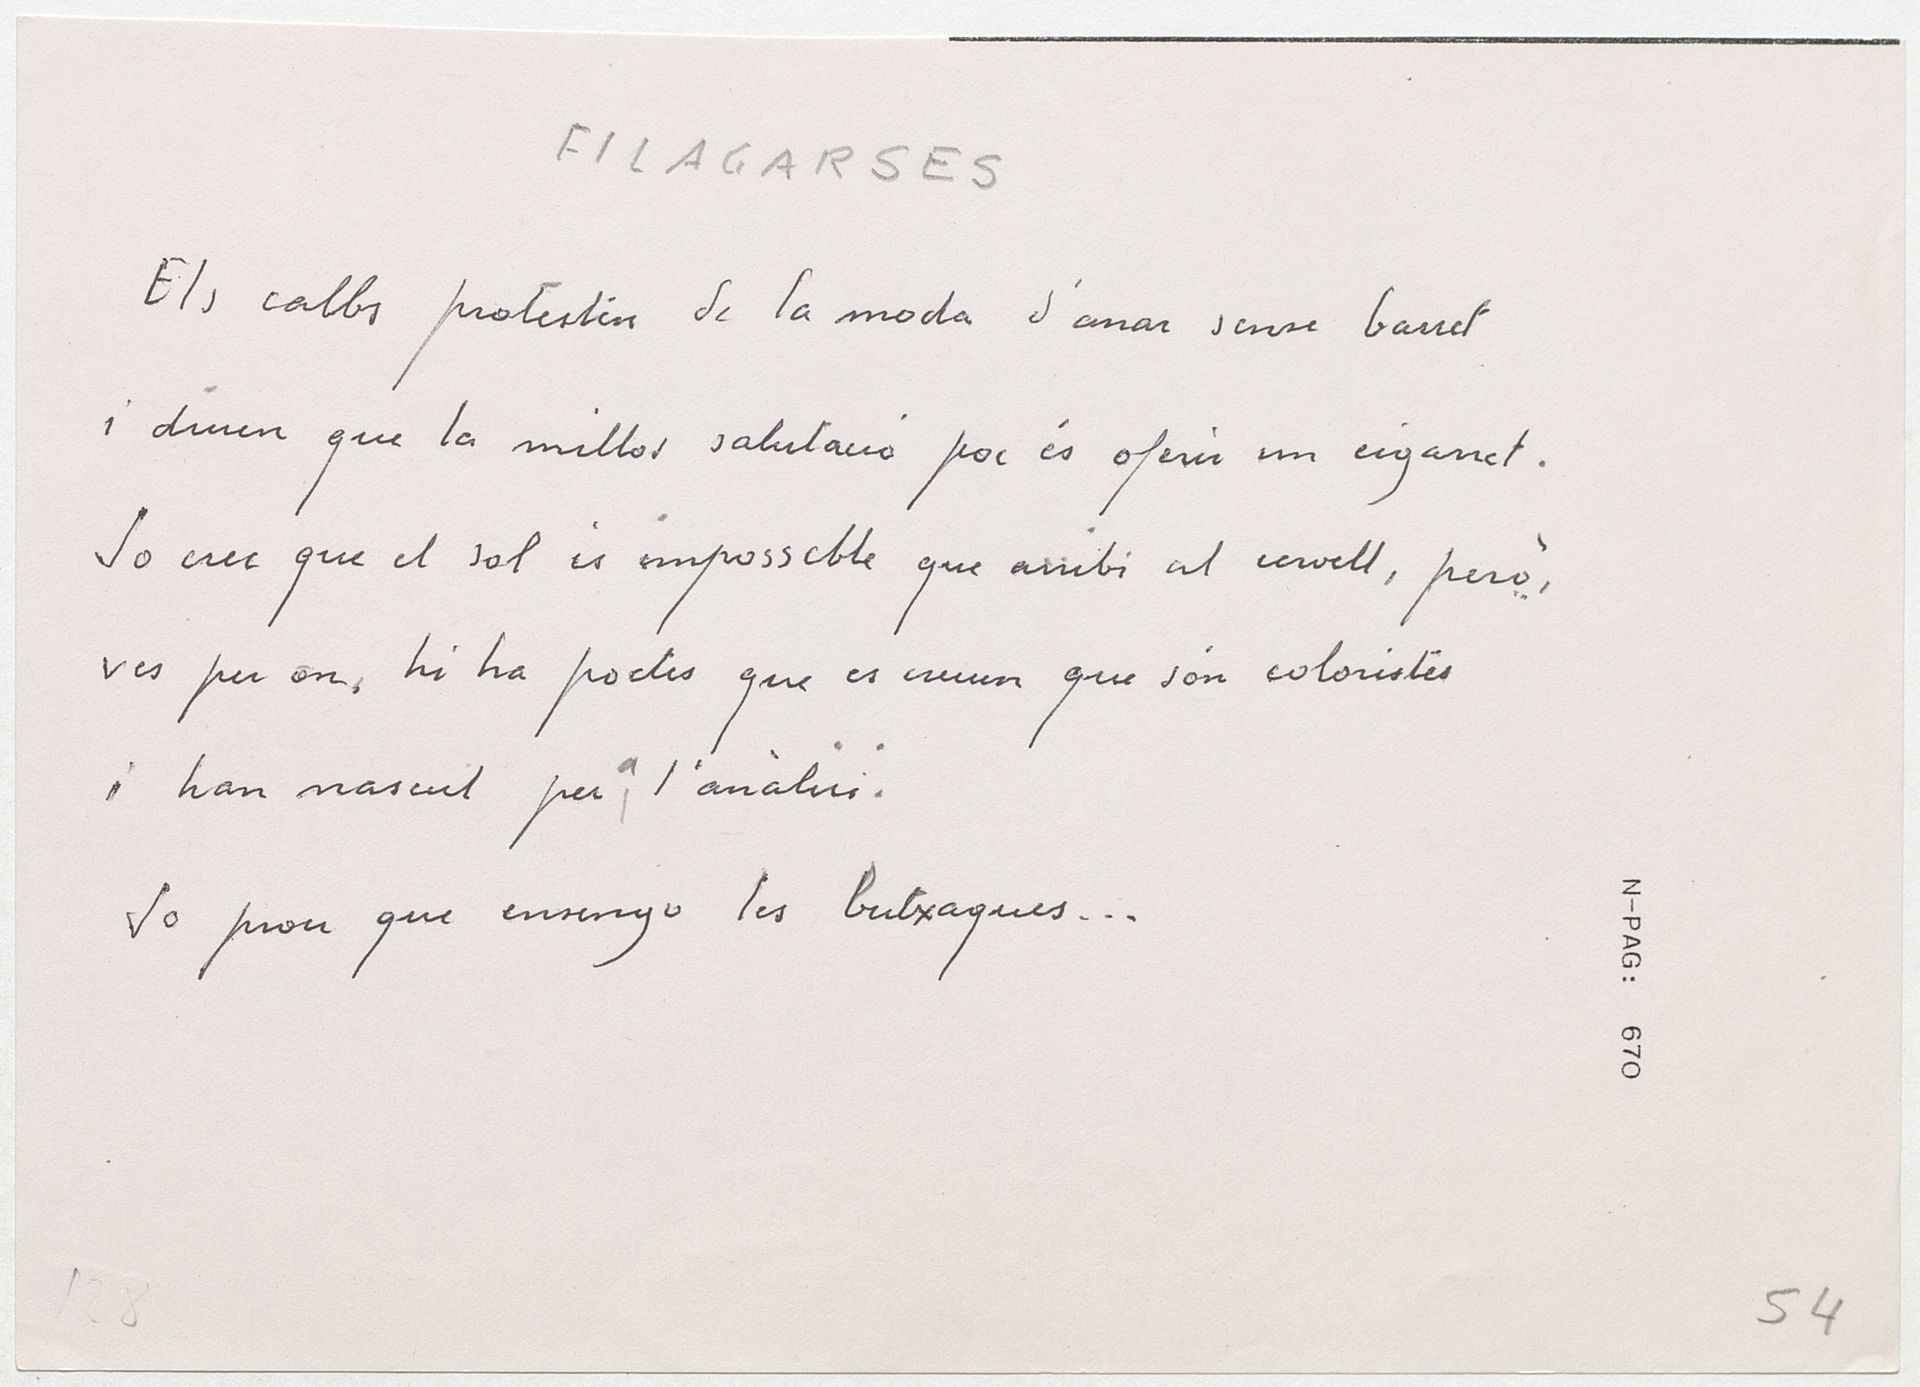 FILAGARSES
Els calbs protesten de la moda d'anar sense barret
i diuen que la millor salutació poc és oferir un cigarret.
Jo crec que el sol és impossible que arribi al cervell, però,
ves per on, hi ha poetes que es creuen que són coloristes
i han nascut per a l'anàlisi.
Jo prou que ensenyo les butxaques...
N-PAG: 670
128
54